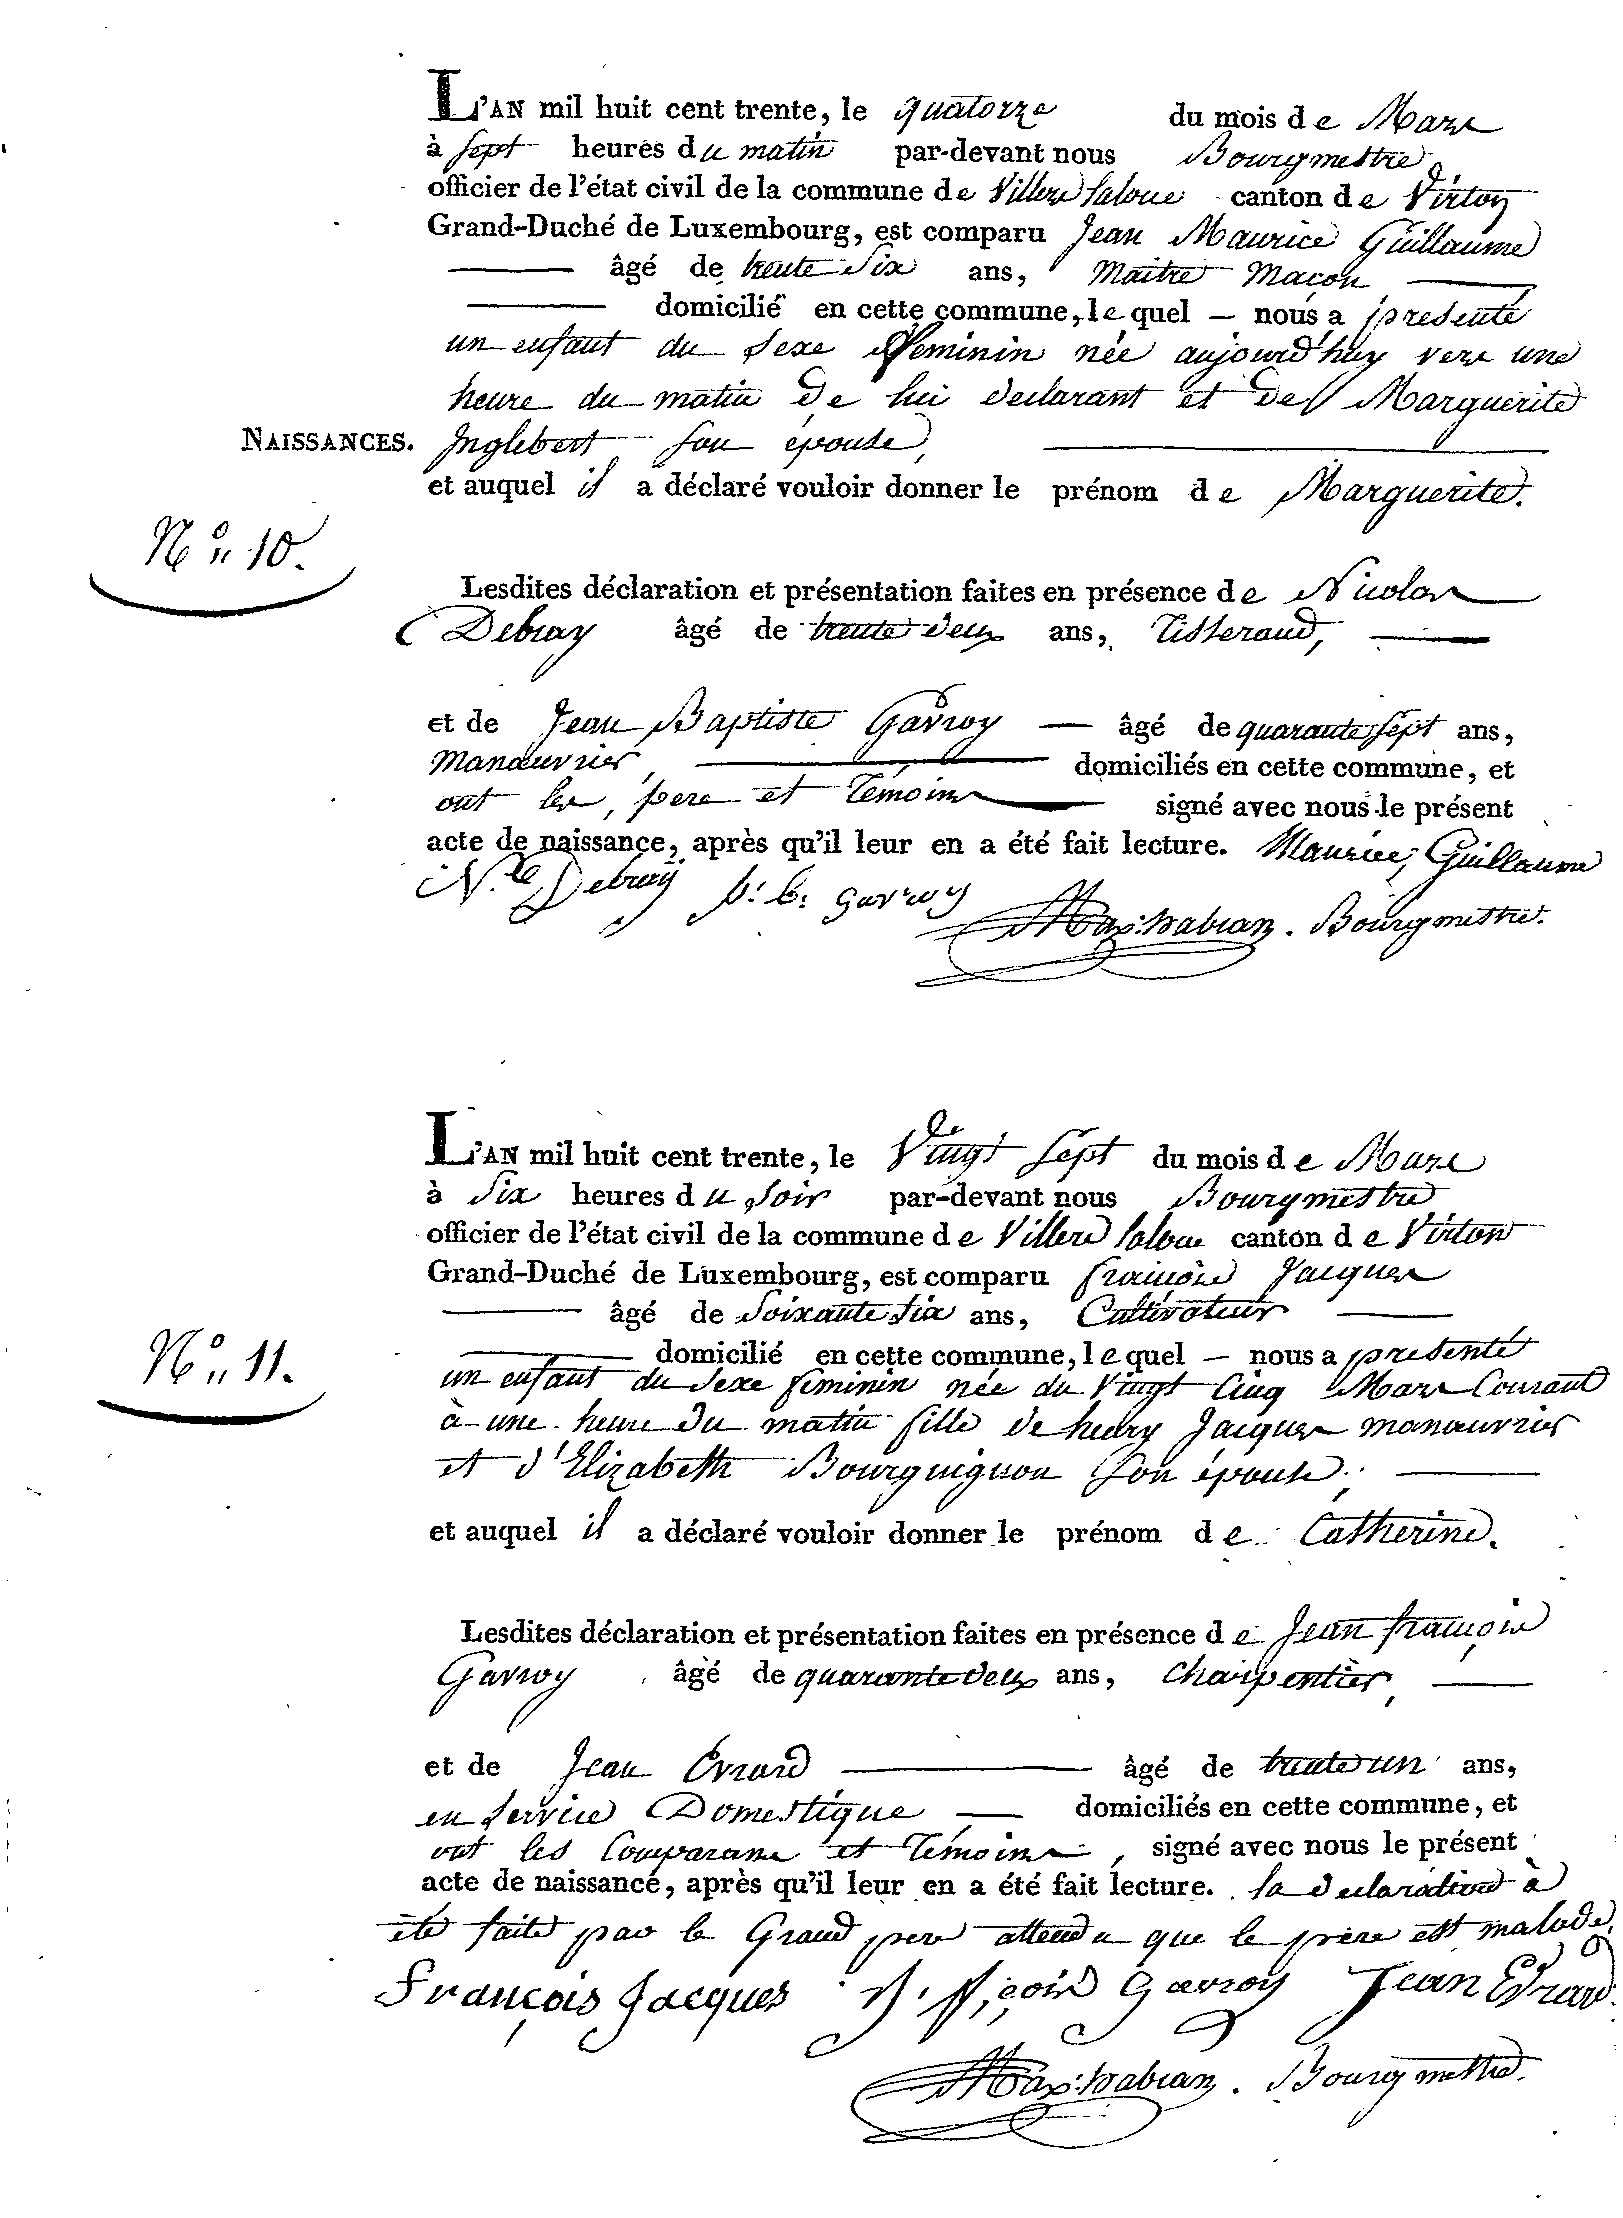 L'AN mil huit cent trente, le quatorze du mois de Mars
à sept heures du matin par-devant nous Bourgmestre
officier de l'état civil de la commune de Villers sᵗ loue canton de Virton
Grand-Duché de Luxembourg, est comparu Jean Maurice Guillaume
âgé de trente six ans, Maître Maçon
domicilié en cette commune, le quel — nous a presenté
un enfant du sexe feminin née aujourd'huy vers une
heure du matin de lui declarant et de Marguerite
NAISSANCES. Inglebert son épouse,
et auquel il a déclaré vouloir donner le prénom de Marguerite.
Nº 10.
Lesdites déclaration et présentation faites en présence de Nicolas
Debray âgé de trente deux ans, Tisserand,
et de Jean Baptiste Gavroy — âgé de quarante sept ans,
manœuvrier, domiciliés en cette commune, et
ont les, pere et temoins signé avec nous le présent
acte de naissance, après qu'il leur en a été fait lecture. Maurice, Guillaume
N.le Debray J: b: gavroy
Bourgmestre.
L'AN mil huit cent trente, le Vingt sept du mois de Mars
à six heures du soir par-devant nous Bourgmestre
officier de l'état civil de la commune de Villers sᵗ loue canton de Virton
Grand-Duché de Luxembourg, est comparu françois Jacques
âgé de soixante six ans, Cultivateur
Nº 11.
domicilié en cette commune, le quel — nous a presenté
un enfant du sexe feminin née du vingt cinq Mars Courant
à une heure du matin fille de henry Jacques manœuvrier
et d'Elizabeth Bourguignon son épouse;
et auquel il a déclaré vouloir donner le prénom de Catherine.
Lesdites déclaration et présentation faites en présence de Jean françois
Gavroy âgé de quarante deux ans, charpentier,
et de Jean Evrard âgé de trente un ans,
en service Domestique, — domiciliés en cette commune, et
ont les Comparans et Témoins, signé avec nous le présent
acte de naissance, après qu'il leur en a été fait lecture. la declaration à
été faite par le Grand pere attendu que le père est malade.
François Jacques J. f,çois Gavroy Jean Evrard
Bourgmestre.